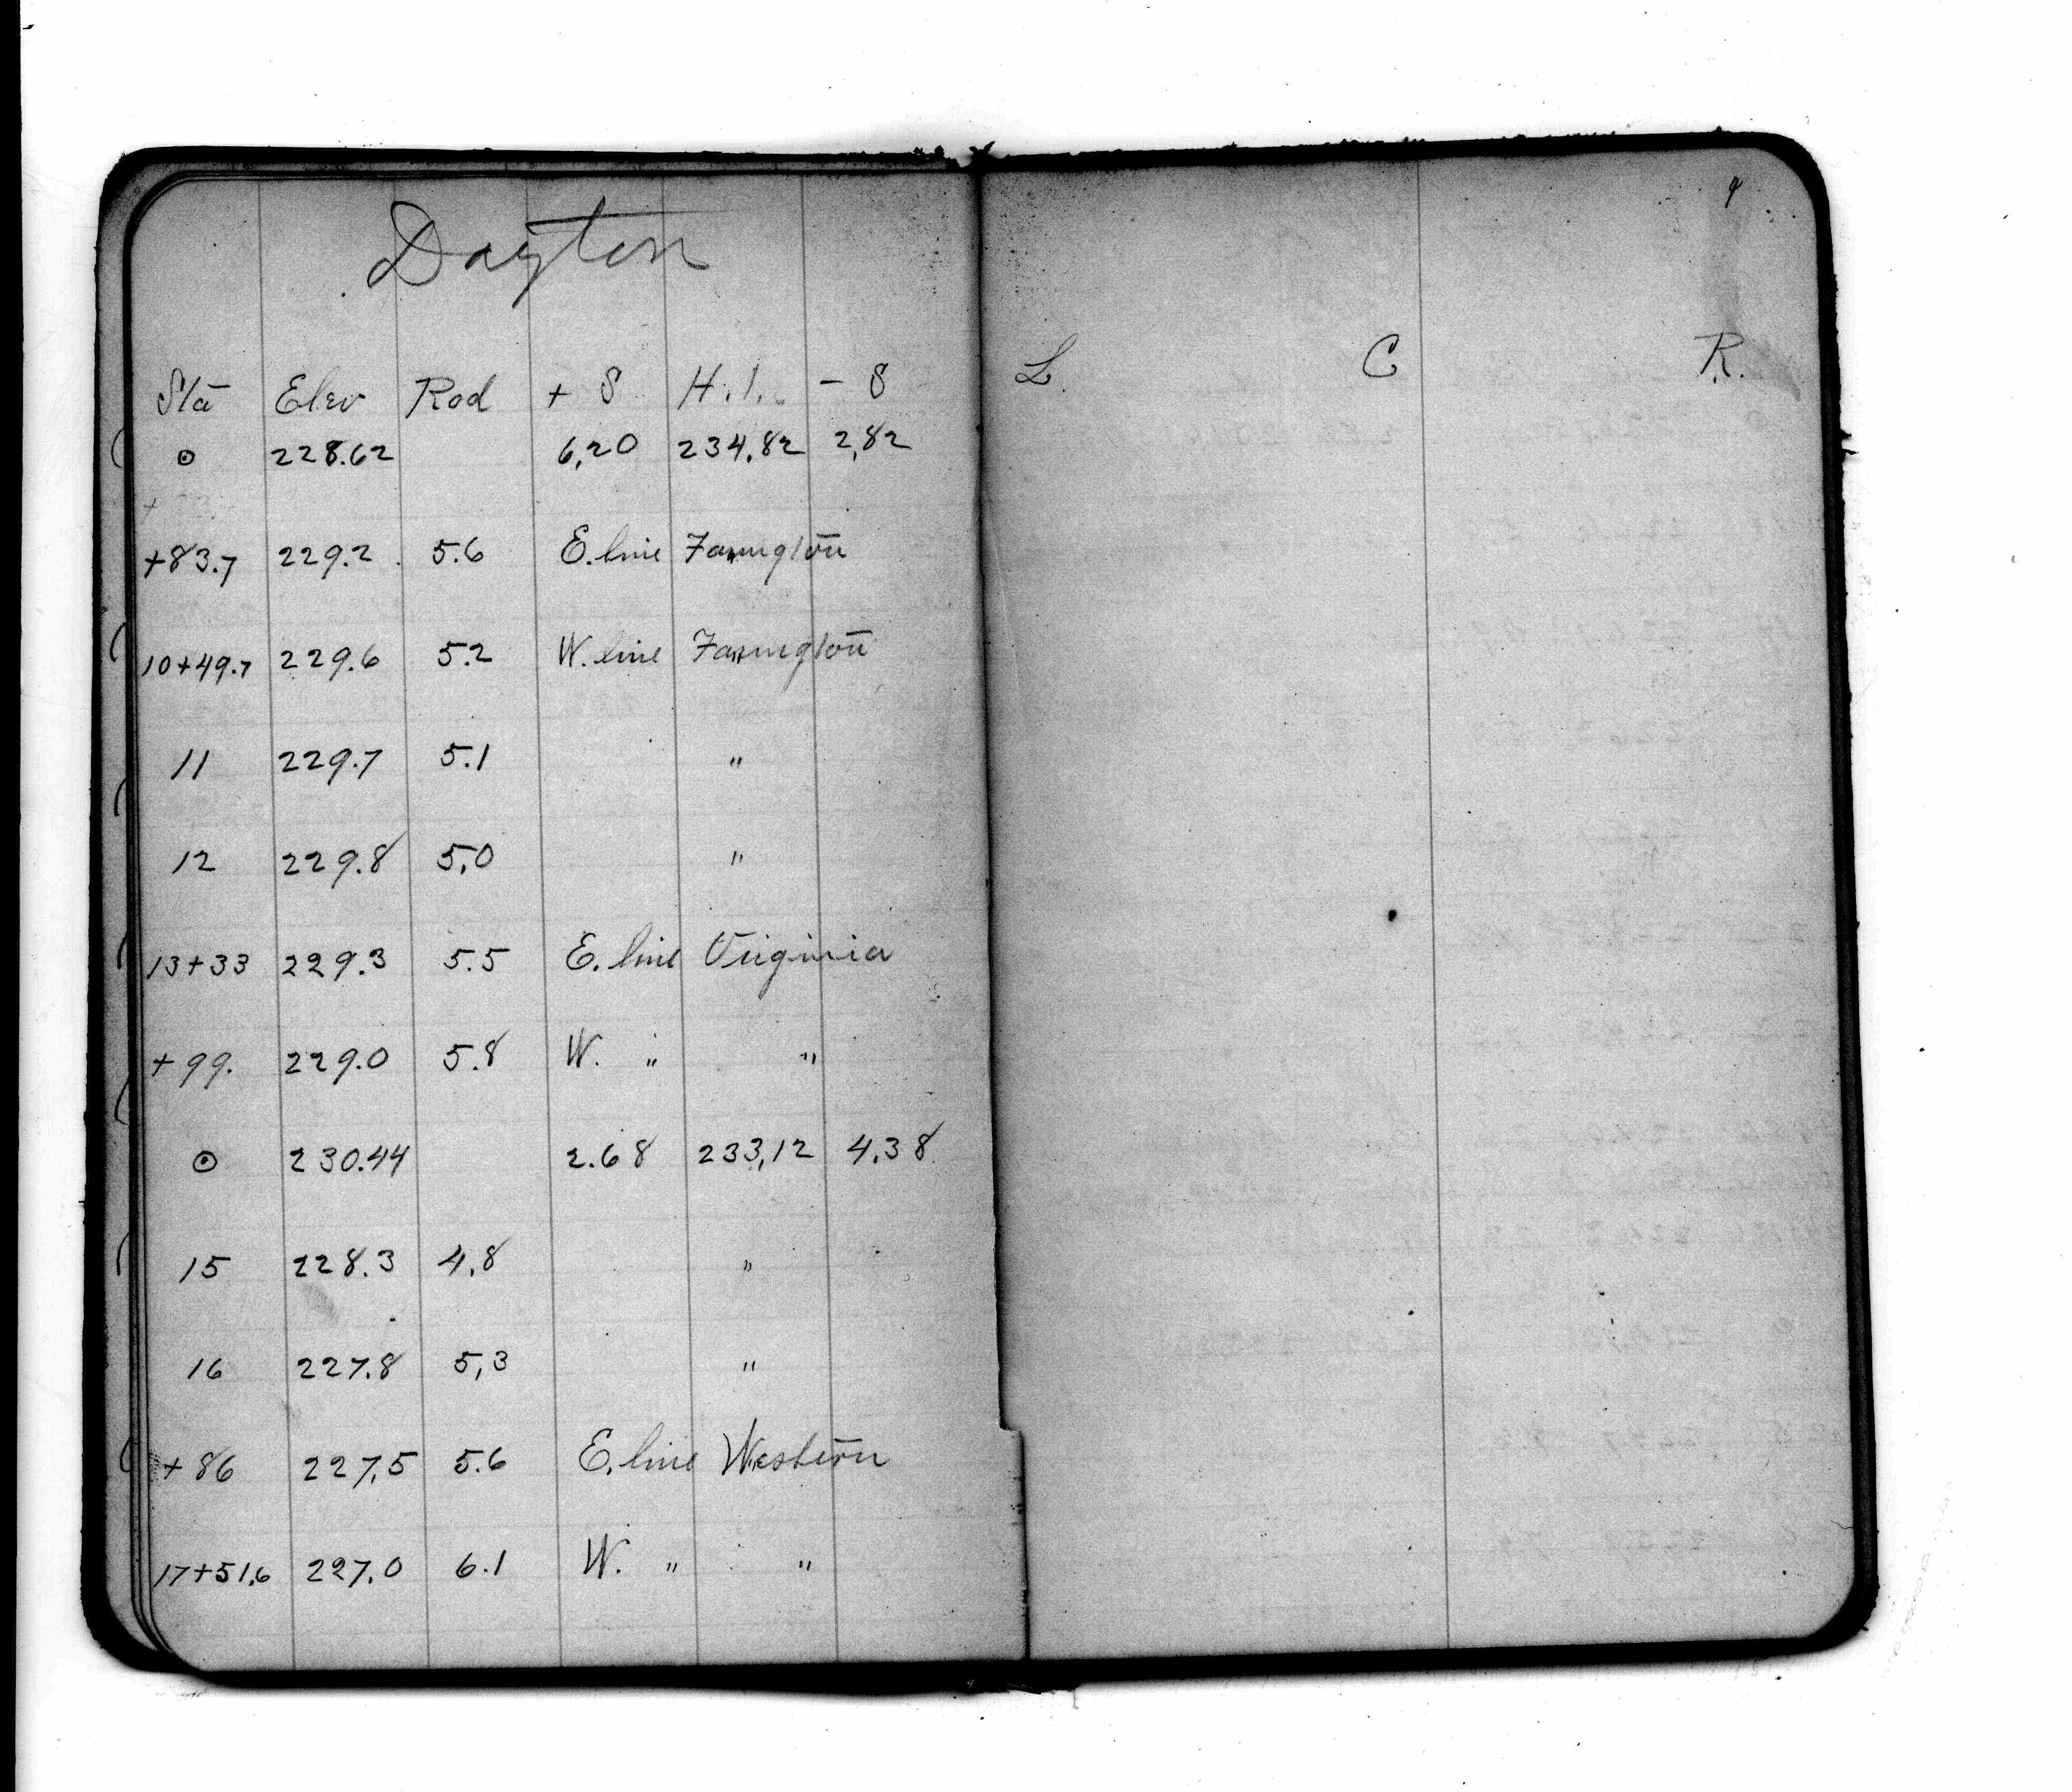 Dayton
9
Sta Elev Rod + S H.I. - S
L. C R.
⊙ 228.62 6.20 234.82 2.82
+83.7 229.2 5.6 E. line Farington
10+49.7 229.6 5.2 W. line Farington
11 229.7 5.1 "
12 229.8 5.0 "
13+33 229.3 5.5 E. line Virginia
+99. 229.0 5.8 W. " "
⊙ 230.44 2.68 233.12 4.38
15 228.3 4.8 "
16 227.8 5.3 "
+86 227.5 5.6 E. line Western
17+51.6 227.0 6.1 W. " "